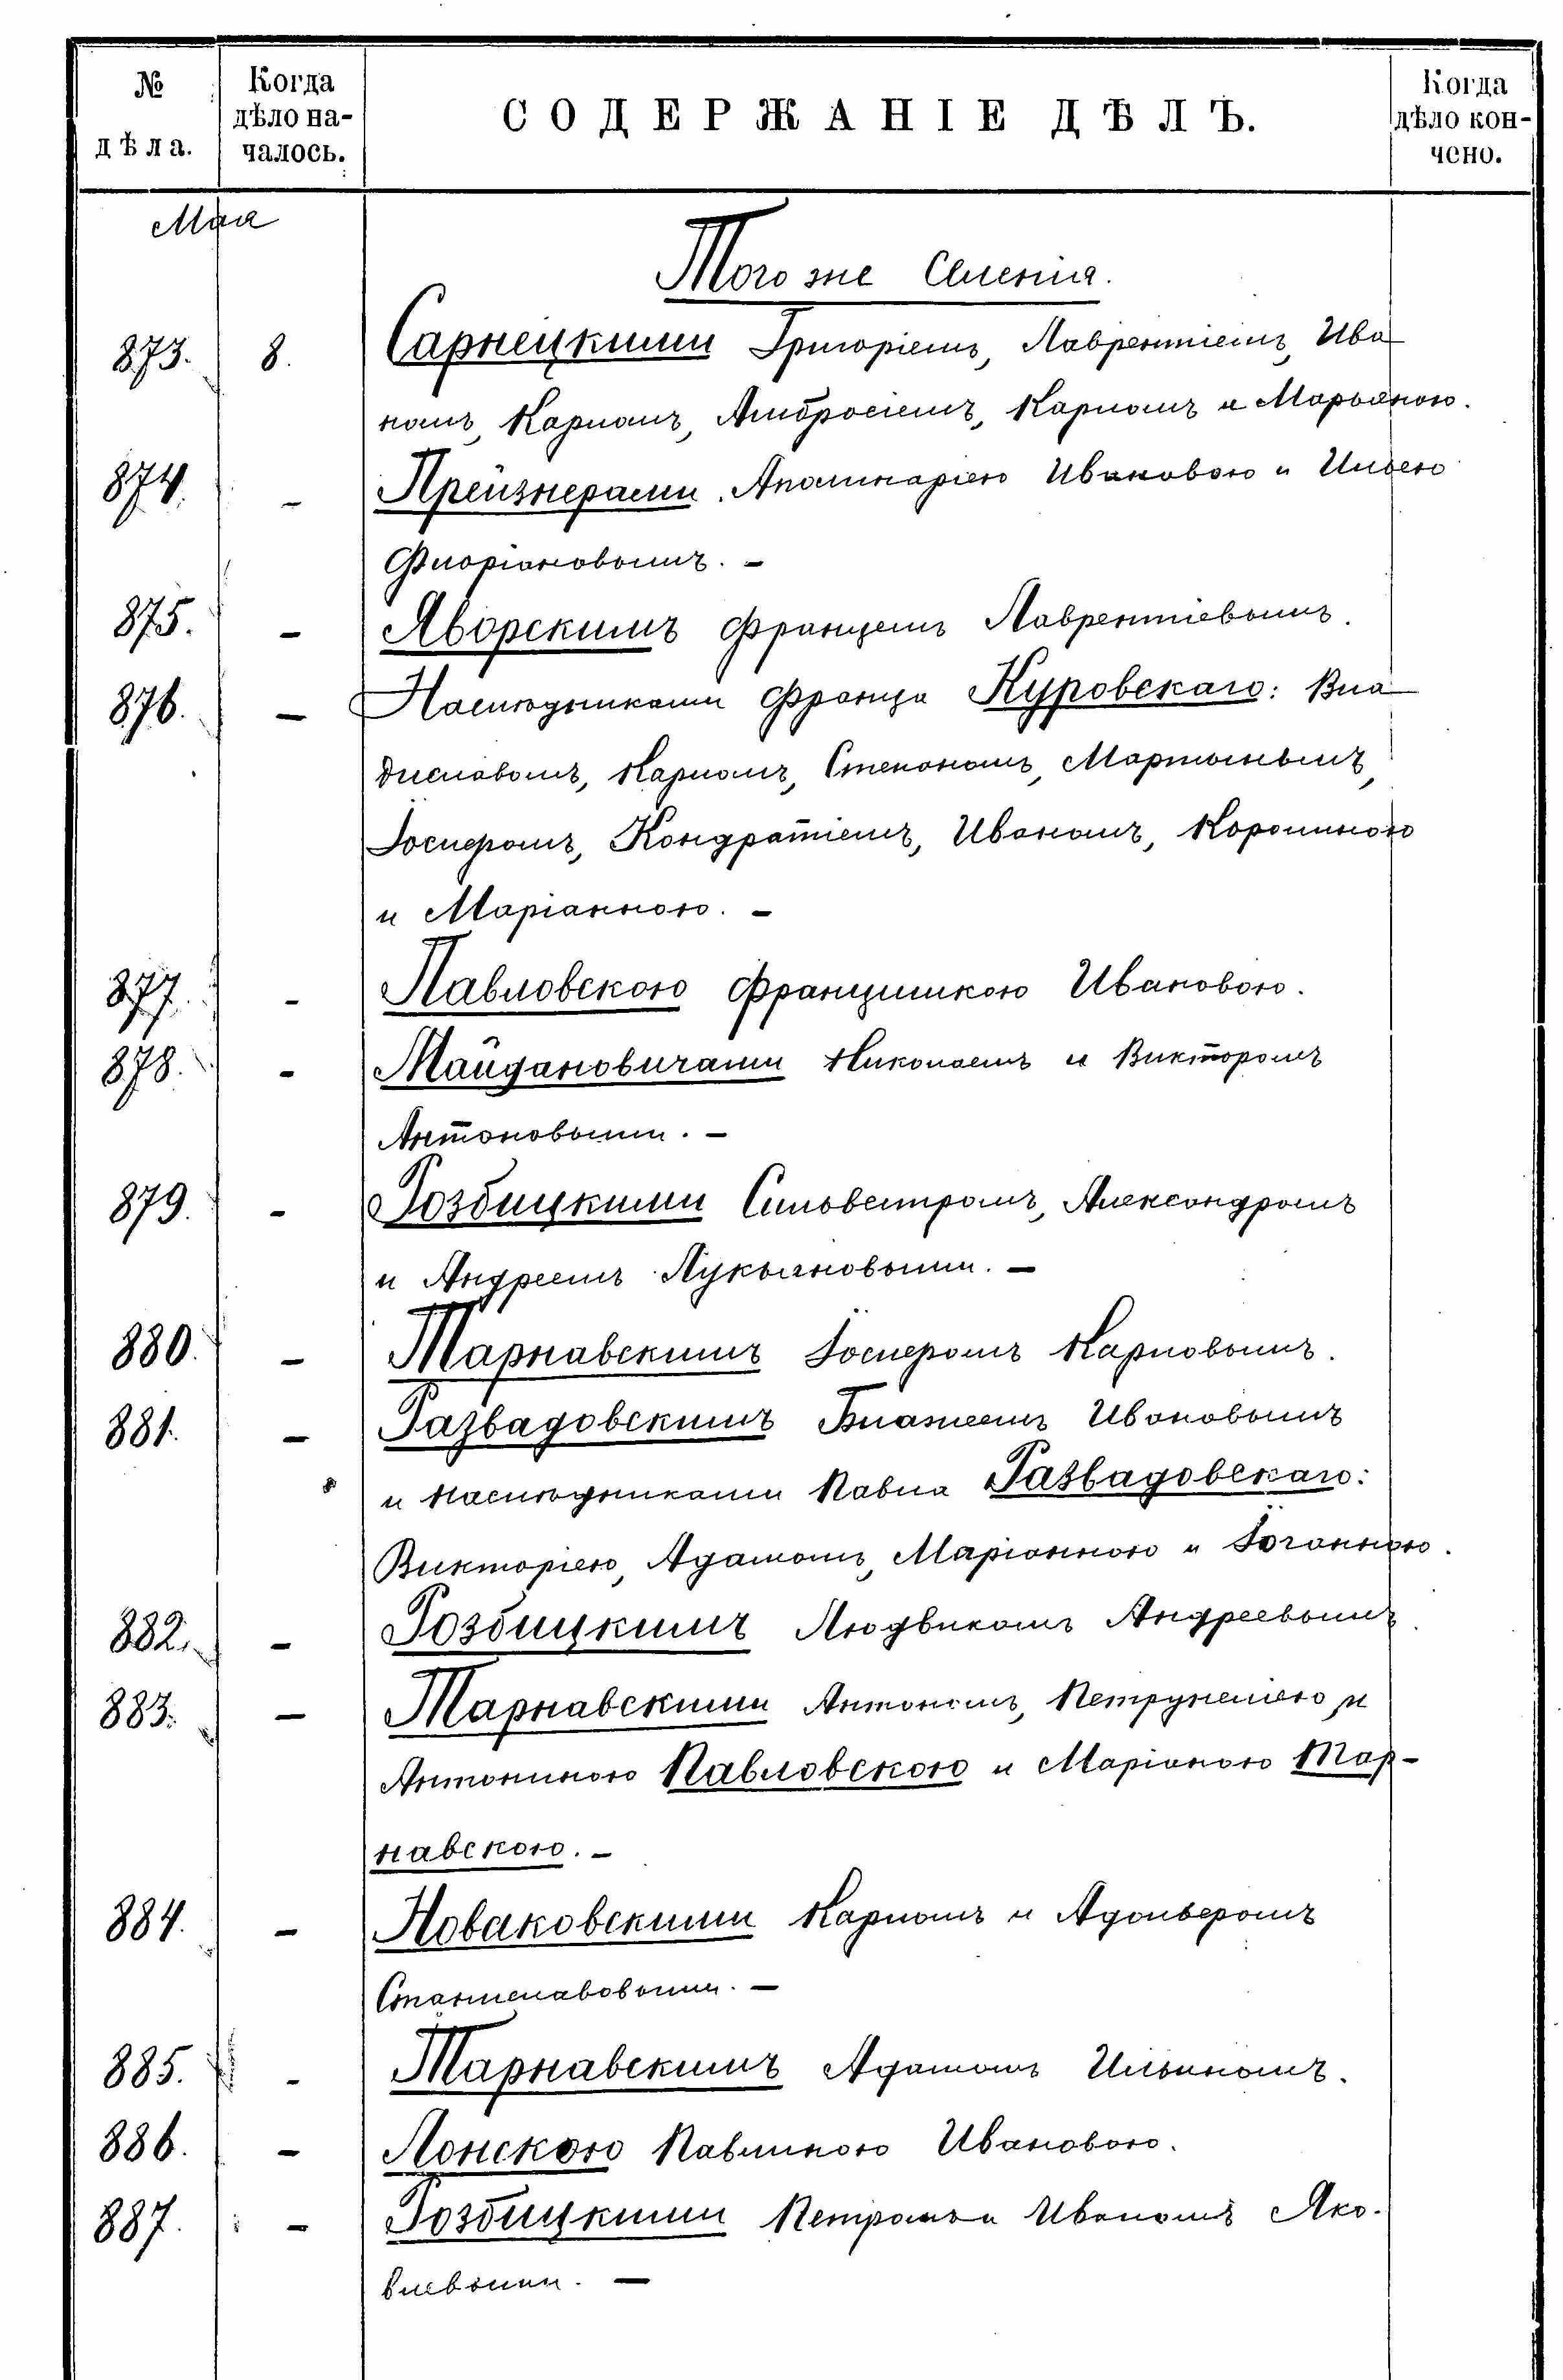 № дѣла.
Когда дѣло на-
чалось.
СОДЕРЖАНІЕ ДѢЛЪ.
Когда дѣло кон-
чено.
Мая
Того же Селенія.
873. 8. Сарнецкими Григоріемъ, Лаврентіемъ, Ива
номъ, Карпомъ, Амбросіемъ, Карпомъ и Марьяною.
874. - Прейзнерами Аполинаріею Ивановою и Ильею
Флоріановымъ. -
875. - Яворскимъ Францемъ Лаврентіевымъ.
876. - Наслѣдниками Франца Куровскаго: Вла
диславомъ, Карломъ, Степаномъ, Мартыномъ,
Іосифомъ, Кондратіемъ, Иваномъ, Каролиною
и Маріанною. -
877. - Павловскою Францишкою Ивановою.
878. - Майдановичами Николаемъ и Викторомъ
Антоновыми. -
879. - Розбицкими Сильвестромъ, Александромъ
и Андреемъ Лукьяновыми. -
880. - Тарнавскимъ Іосифомъ Карповымъ.
881. - Развадовскимъ Блажеемъ Ивановымъ
и наслѣдниками Павла Развадовскаго:
Викторіею, Адамомъ, Маріанною и Іоганною.
882. - Розбицкимъ Людвикомъ Андреевымъ
883. - Тарнавскими Антономъ, Петрунелею и
Антониною Павловскою и Маріаною Тар-
навскою. -
884. - Новаковскими Карломъ и Адольфомъ
Станиславовыми. -
885. - Тарнавскимъ Адамомъ Ильинымъ.
886. - Лонскою Павлиною Ивановою.
887. - Розбицкими Петромъ и Иваномъ Яко-
влевыми. -